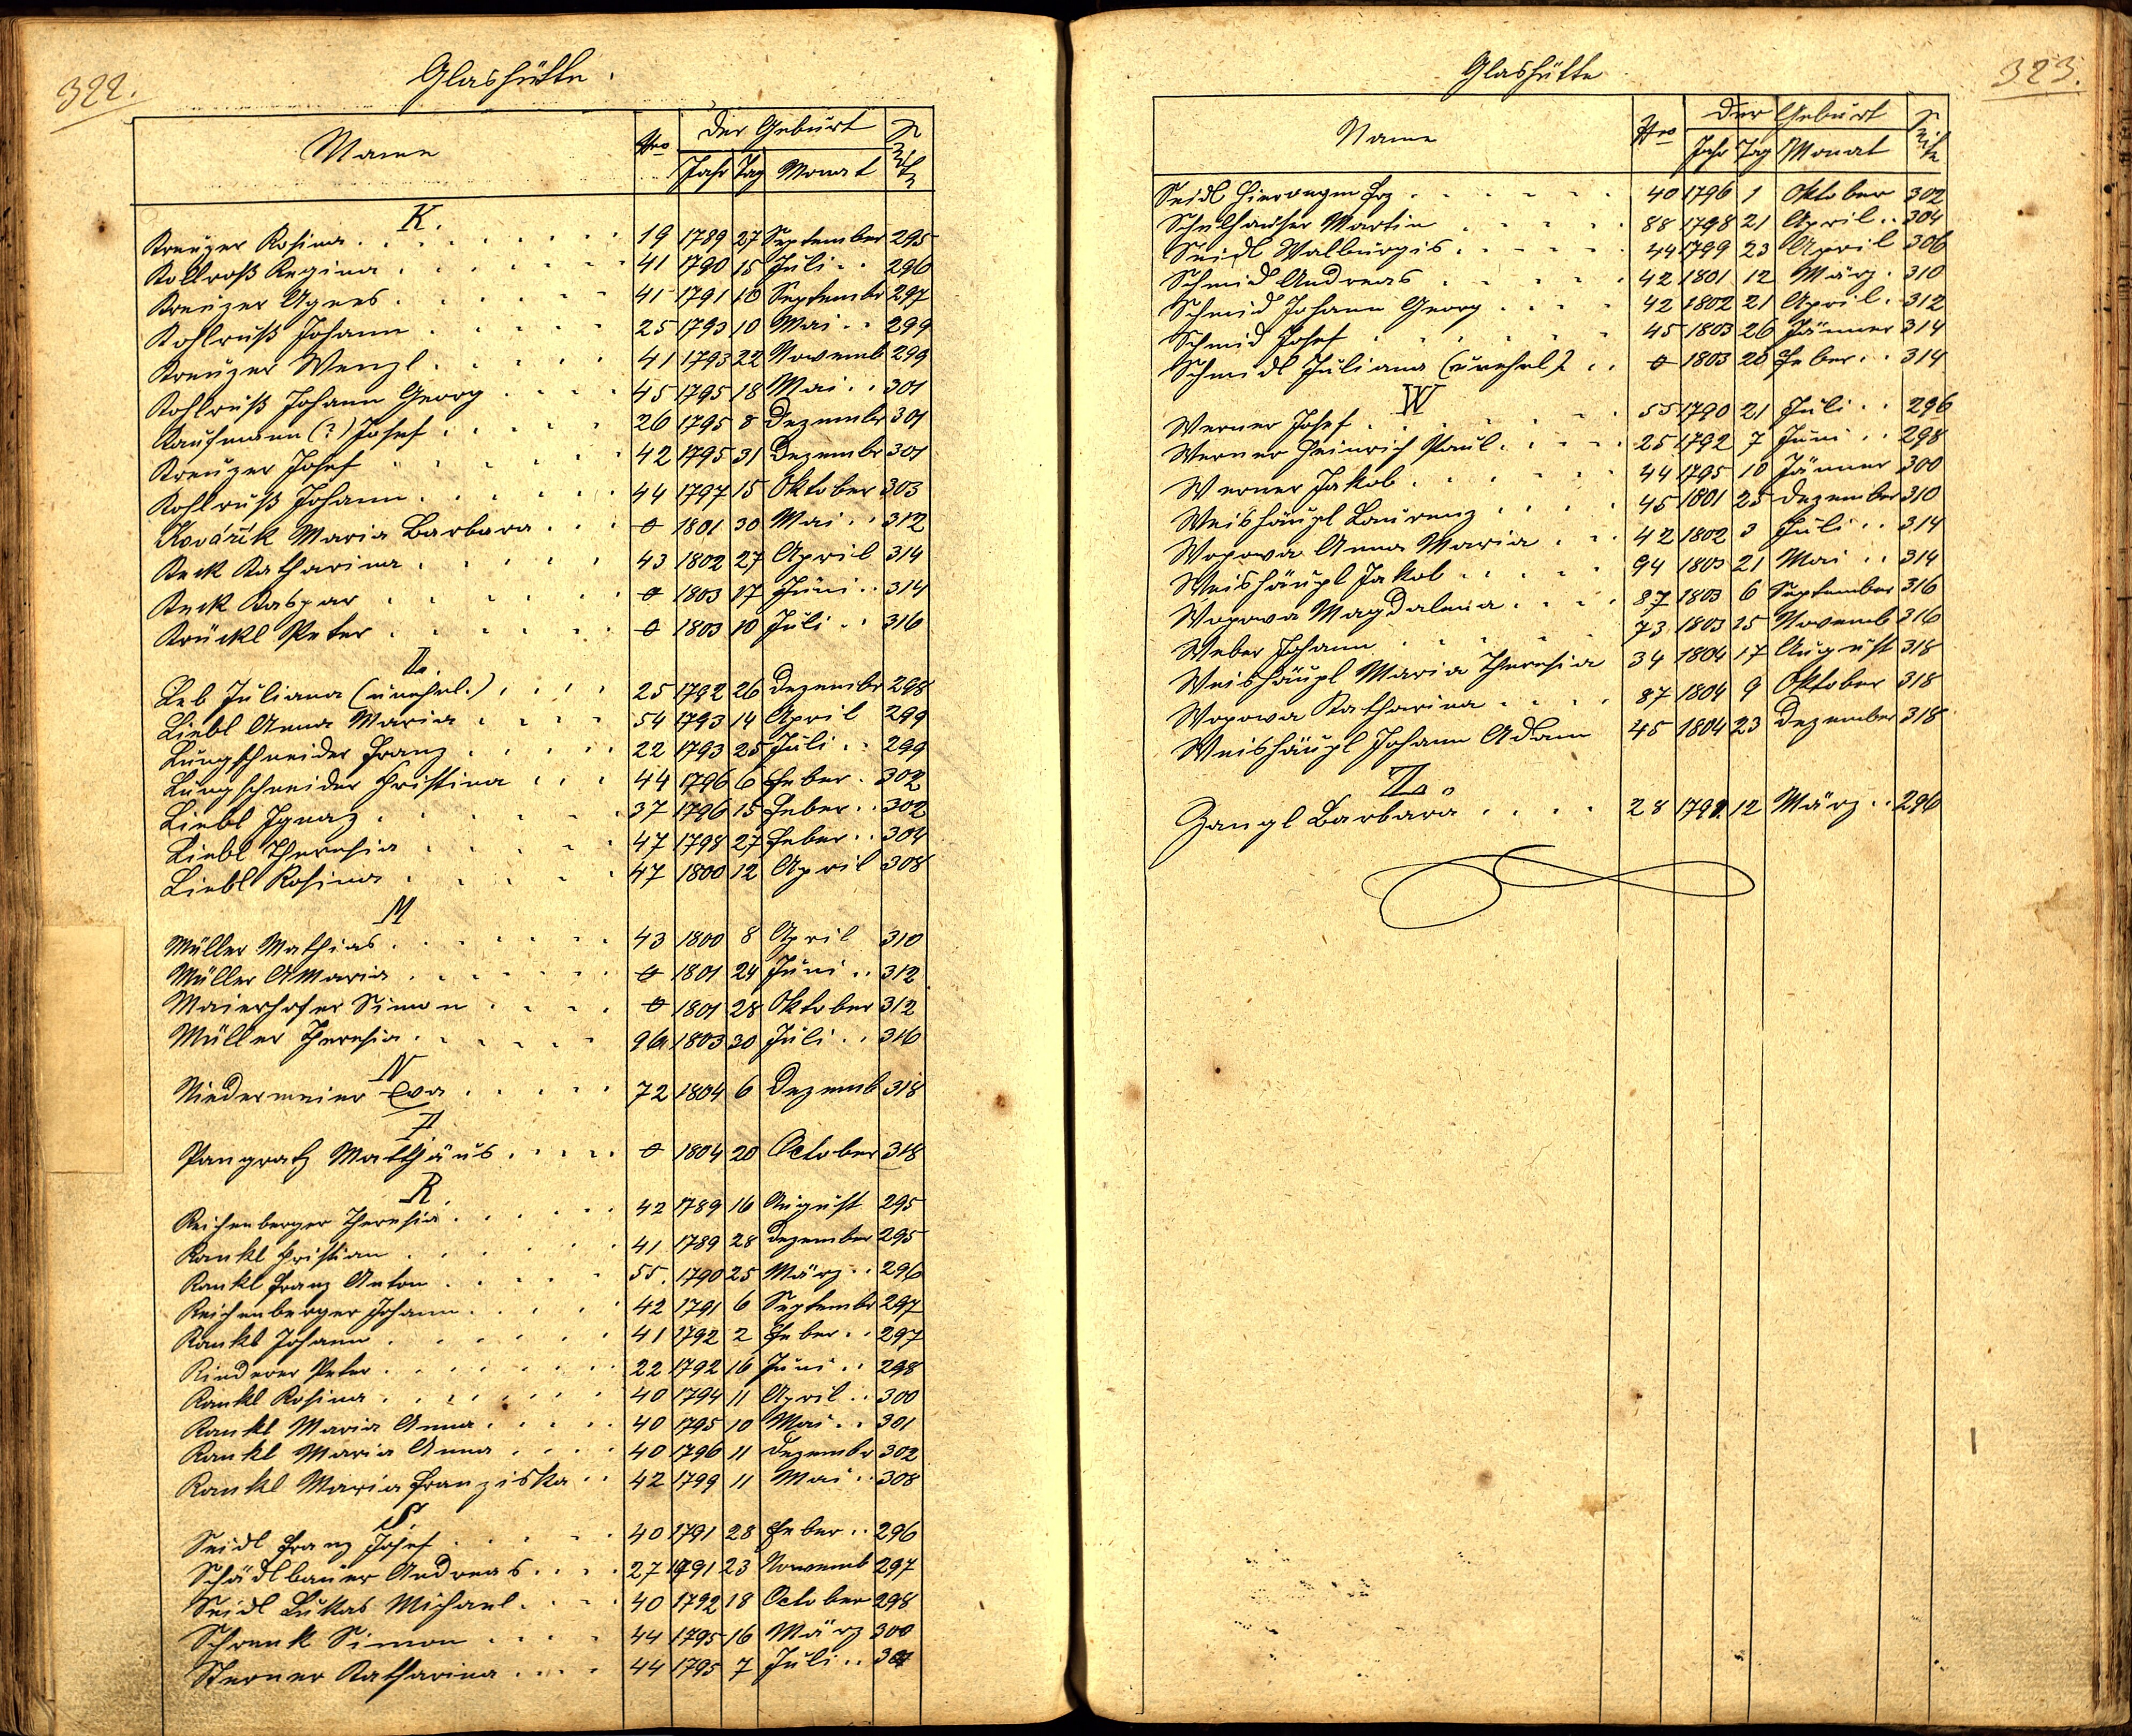 322.
Glashütte.
Name Nro der Geburt Seite
Jahr Tag Monat
K.
Kreuzer Rosina 19 1789 27 September 295
Kollroß Regina 41 1790 15 Juli 296
Kreuzer Agnes 41 1791 10 Septembr 297
Kohlruß Johann 25 1793 10 Mai 299
Kreuzer Wenzl 41 1793 22 Novemb 299
Kohlruß Johann Georg 45 1795 18 Mai 301
Kaufmann (?) Josef 26 1795 8 Dezembr 301
Kreuzer Josef 42 1795 31 Dezembr 301
Kohlruß Johann 44 1797 15 Oktober 303
Kovařik Maria Barbara 0 1801 30 Mai 312
Keck Katharina 43 1802 27 April 314
Keck Kaspar 0 1803 17 Juni 314
Krückl Peter 0 1803 10 Juli 316
L.
Leb Juliana (unehel.) 25 1792 26 Dezembr 298
Liebl Anna Maria 54 1793 14 April 299
Lungschneider Franz 22 1793 25 Juli 299
Lungschneider Christina 44 1796 6 Feber 302
Liebl Ignaz 37 1796 15 Feber 302
Liebl Theresia 47 1798 27 Feber 304
Liebl Rosina 47 1800 12 April 308
M
Müller Mathias 43 1800 8 April 310
Müller AMaria 0 1801 24 Juni 312
Maierhofer Simon 0 1801 28 Oktober 312
Müller Theresia 96 1803 30 Juli 316
N
Niedermeier Eva 72 1804 6 Dezemb 318
P
Pangratz Matthäus 0 1804 20 October 318
R.
Reichenberger Theresia 42 1789 16 August 295
Rankl Christian 41 1789 28 Dezember 295
Rankl Franz Anton 55. 1790 25 März 296
Reichenberger Johann 42 1791 6 Septembr 297
Rankl Johann 41 1792 2 Feber 297
Rinderer Peter 22 1792 16 Juni 298
Rankl Rosina 40 1794 11 April 300
Rankl Maria Anna 40 1795 10 Mai 301
Rankl Maria Anna 40 1796 11 Dezembr 302
Rankl Maria Franziska 42 1799 11 Mai 308
S.
Seidl Franz Josef 40 1791 28 Feber 296
Schädlbauer Andreas 27 1791 23 Novemb 297
Seidl Lukas Michael 40 1792 18 October 298
Schrenk Simon 44 1795 16 März 300
Sterner Katharina 44 1795 7 Juli 301
323.
Glashütte
Name Nro der Geburt Seite
Jahr Tag Monat
Seidl 40 1796 1 Oktober 302
Schulhauser Martin 88 1798 21 April 304
Seidl Walburgis 44 1799 23 April 306
Schmid Andreas 42 1801 12 März 310
Schmid Johann Georg 42 1802 21 April 312
Schmid Josef 45 1803 26 Jänner 314
Schmidl Juliana (unehel) 0 1803 28 Feber 314
W
Werner Josef 55 1790 21 Juli 296
Werner Heinrich Paul 25 1792 7 Juni 298
Werner Jakob 44 1795 10 Jänner 300
Weishäupl Laurenz 45 1801 25 Dezember 310
Wopowa Anna Maria 42 1802 3 Juli 314
Weishäupl Jakob 94 1803 21 Mai 314
Wopowa Magdalena 87 1803 6 September 316
Weber Johann 73 1803 15 Novemb 316
Weishäupl Maria Theresia 34 1804 17 August 318
Wopowa Katharina 87 1804 9 Oktober 318
Weishäupl Johann Adam 45 1804 23 Dezember 318
Z.
Zangl Barbara 28 1791 12 März 296